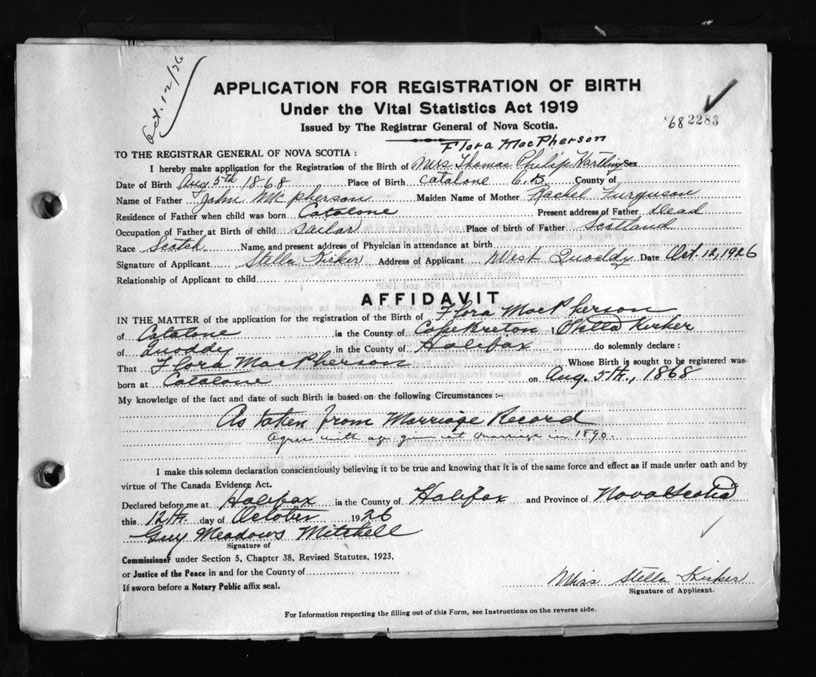 Oct. 12/26
APPLICATION FOR REGISTRATION OF BIRTH
Under the Vital Statistics Act 1919
Issued by The Registrar General of Nova Scotia.
'68 2283
Flora MacPherson
TO THE REGISTRAR GENERAL OF NOVA SCOTIA:
I hereby make application for the Registration of the Birth of Mrs Thomas Philip Sex
Date of Birth Aug 5th 1868 Place of Birth Catalone C.B. County of
Name of Father John McPherson Maiden Name of Mother Rachel Furguson
Residence of Father when child was born Catalone Present address of Father Dead
Occupation of Father at Birth of child Sailor Place of birth of Father Scotland
Race Scotch Name and present address of Physician in attendance at birth
Signature of Applicant Stella Kirker Address of Applicant West Quoddy Date Oct. 12, 1926
Relationship of Applicant to child
AFFIDAVIT
IN THE MATTER of the application for the registration of the Birth of Flora MacPherson
of Catalone in the County of Cape Breton, Stella Kirker
of Quoddy in the County of Halifax do solemnly declare:
That Flora MacPherson Whose Birth is sought to be registered was
born at Catalone on Aug. 5th., 1868
My knowledge of the fact and date of such Birth is based on the following Circumstances:-
As taken from Marriage Record
Agrees with age given at marriage in 1890.
I make this solemn declaration conscientiously believing it to be true and knowing that it is of the same force and effect as if made under oath and by
virtue of The Canada Evidence Act.
Declared before me at Halifax in the County of Halifax and Province of Nova Scotia
this 12th. day of October 1926
Guy Meadows Mitchell
Signature of
Commissioner under Section 5, Chapter 38, Revised Statutes, 1923,
or Justice of the Peace in and for the County of
If sworn before a Notary Public affix seal.
Miss Stella Kirker
Signature of Applicant.
For Information respecting the filling out of this Form, see Instructions on the reverse side.